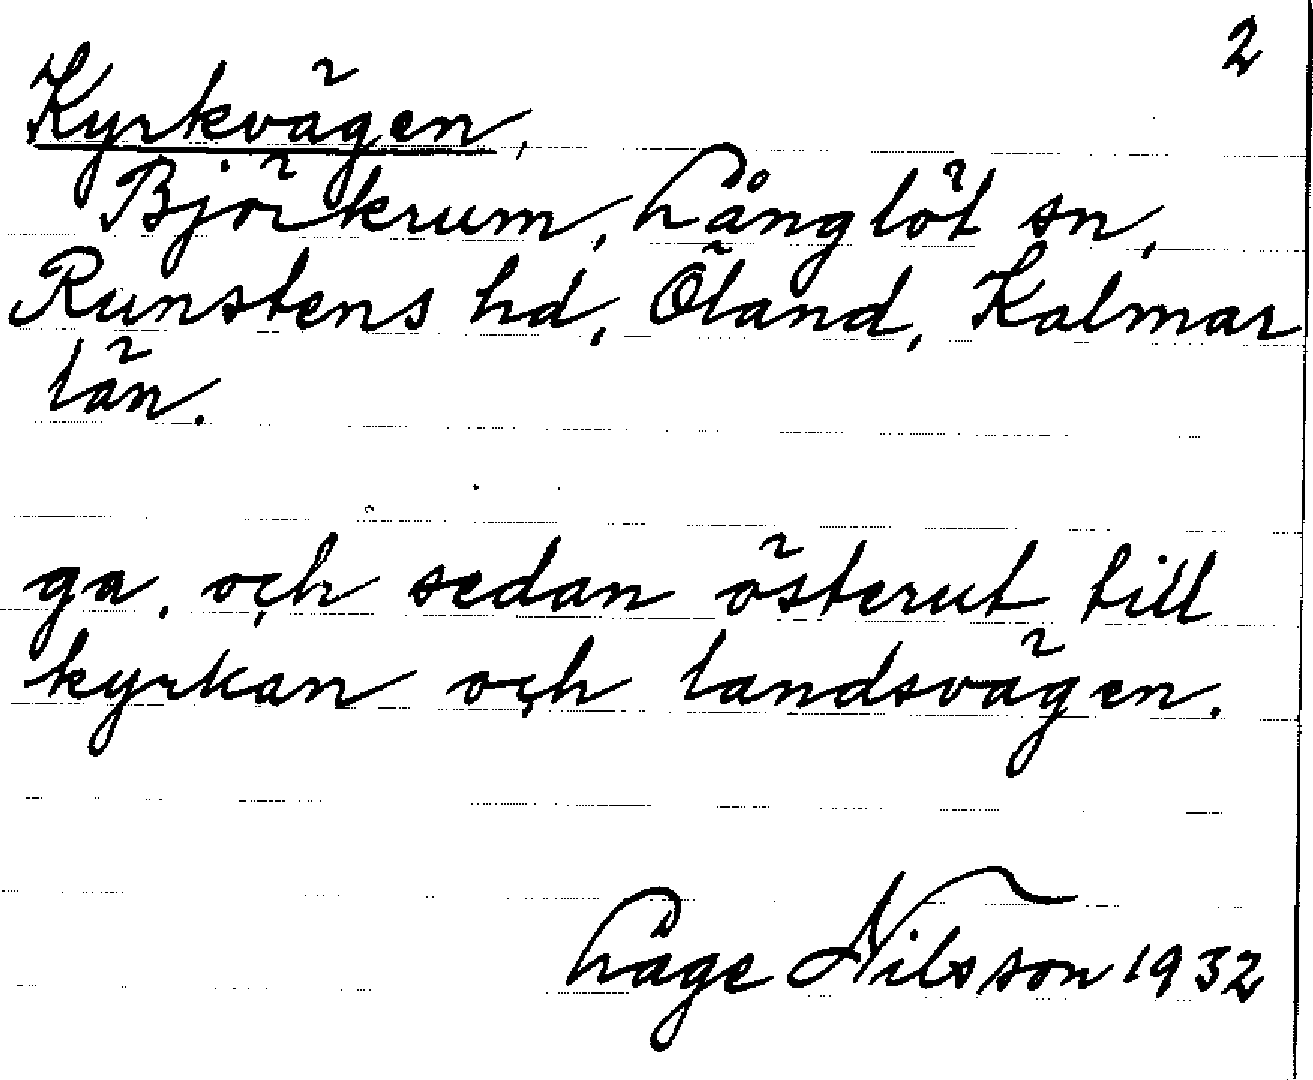 2
Kyrkvägen,
Björkrum, Långlöt sn,
Runstens hd, Öland, Kalmar
län.
ga, och sedan österut till
kyrkan och landsvägen.
Låge Nilsson 1932